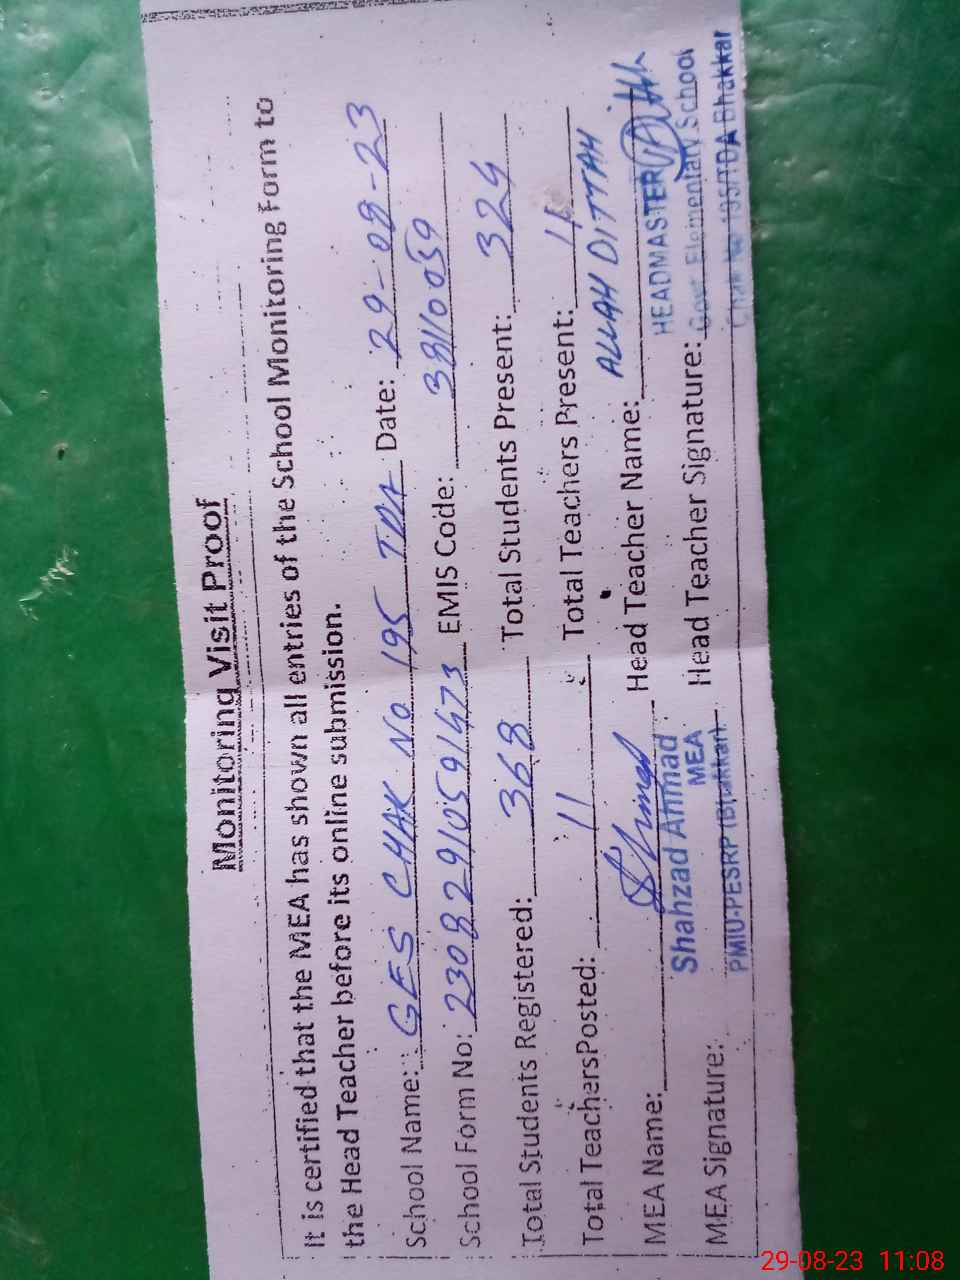 Monitoring Visit Proof
It is certified that the MEA has shown all entries of the School Monitoring Form to
the Head Teacher before its online submission.
School Name: GES CHAK No 195 TDA Date: 29-08-23
School Form No: 23082910591473 EMIS Code: 38110059
Total Students Registered: 368 Total Students Present: 324
Total TeachersPosted: 11 Total Teachers Present: 11
MEA Name: Head Teacher Name: ALLAH DITTAH
Shahzad Ahmad
MEA
HEADMASTER
MEA Signature: PMIU-PESRP (Bhakkar). Head Teacher Signature: Govt. Elementary School
Chak No 195/TDA Bhakkar
29-08-23 11:08